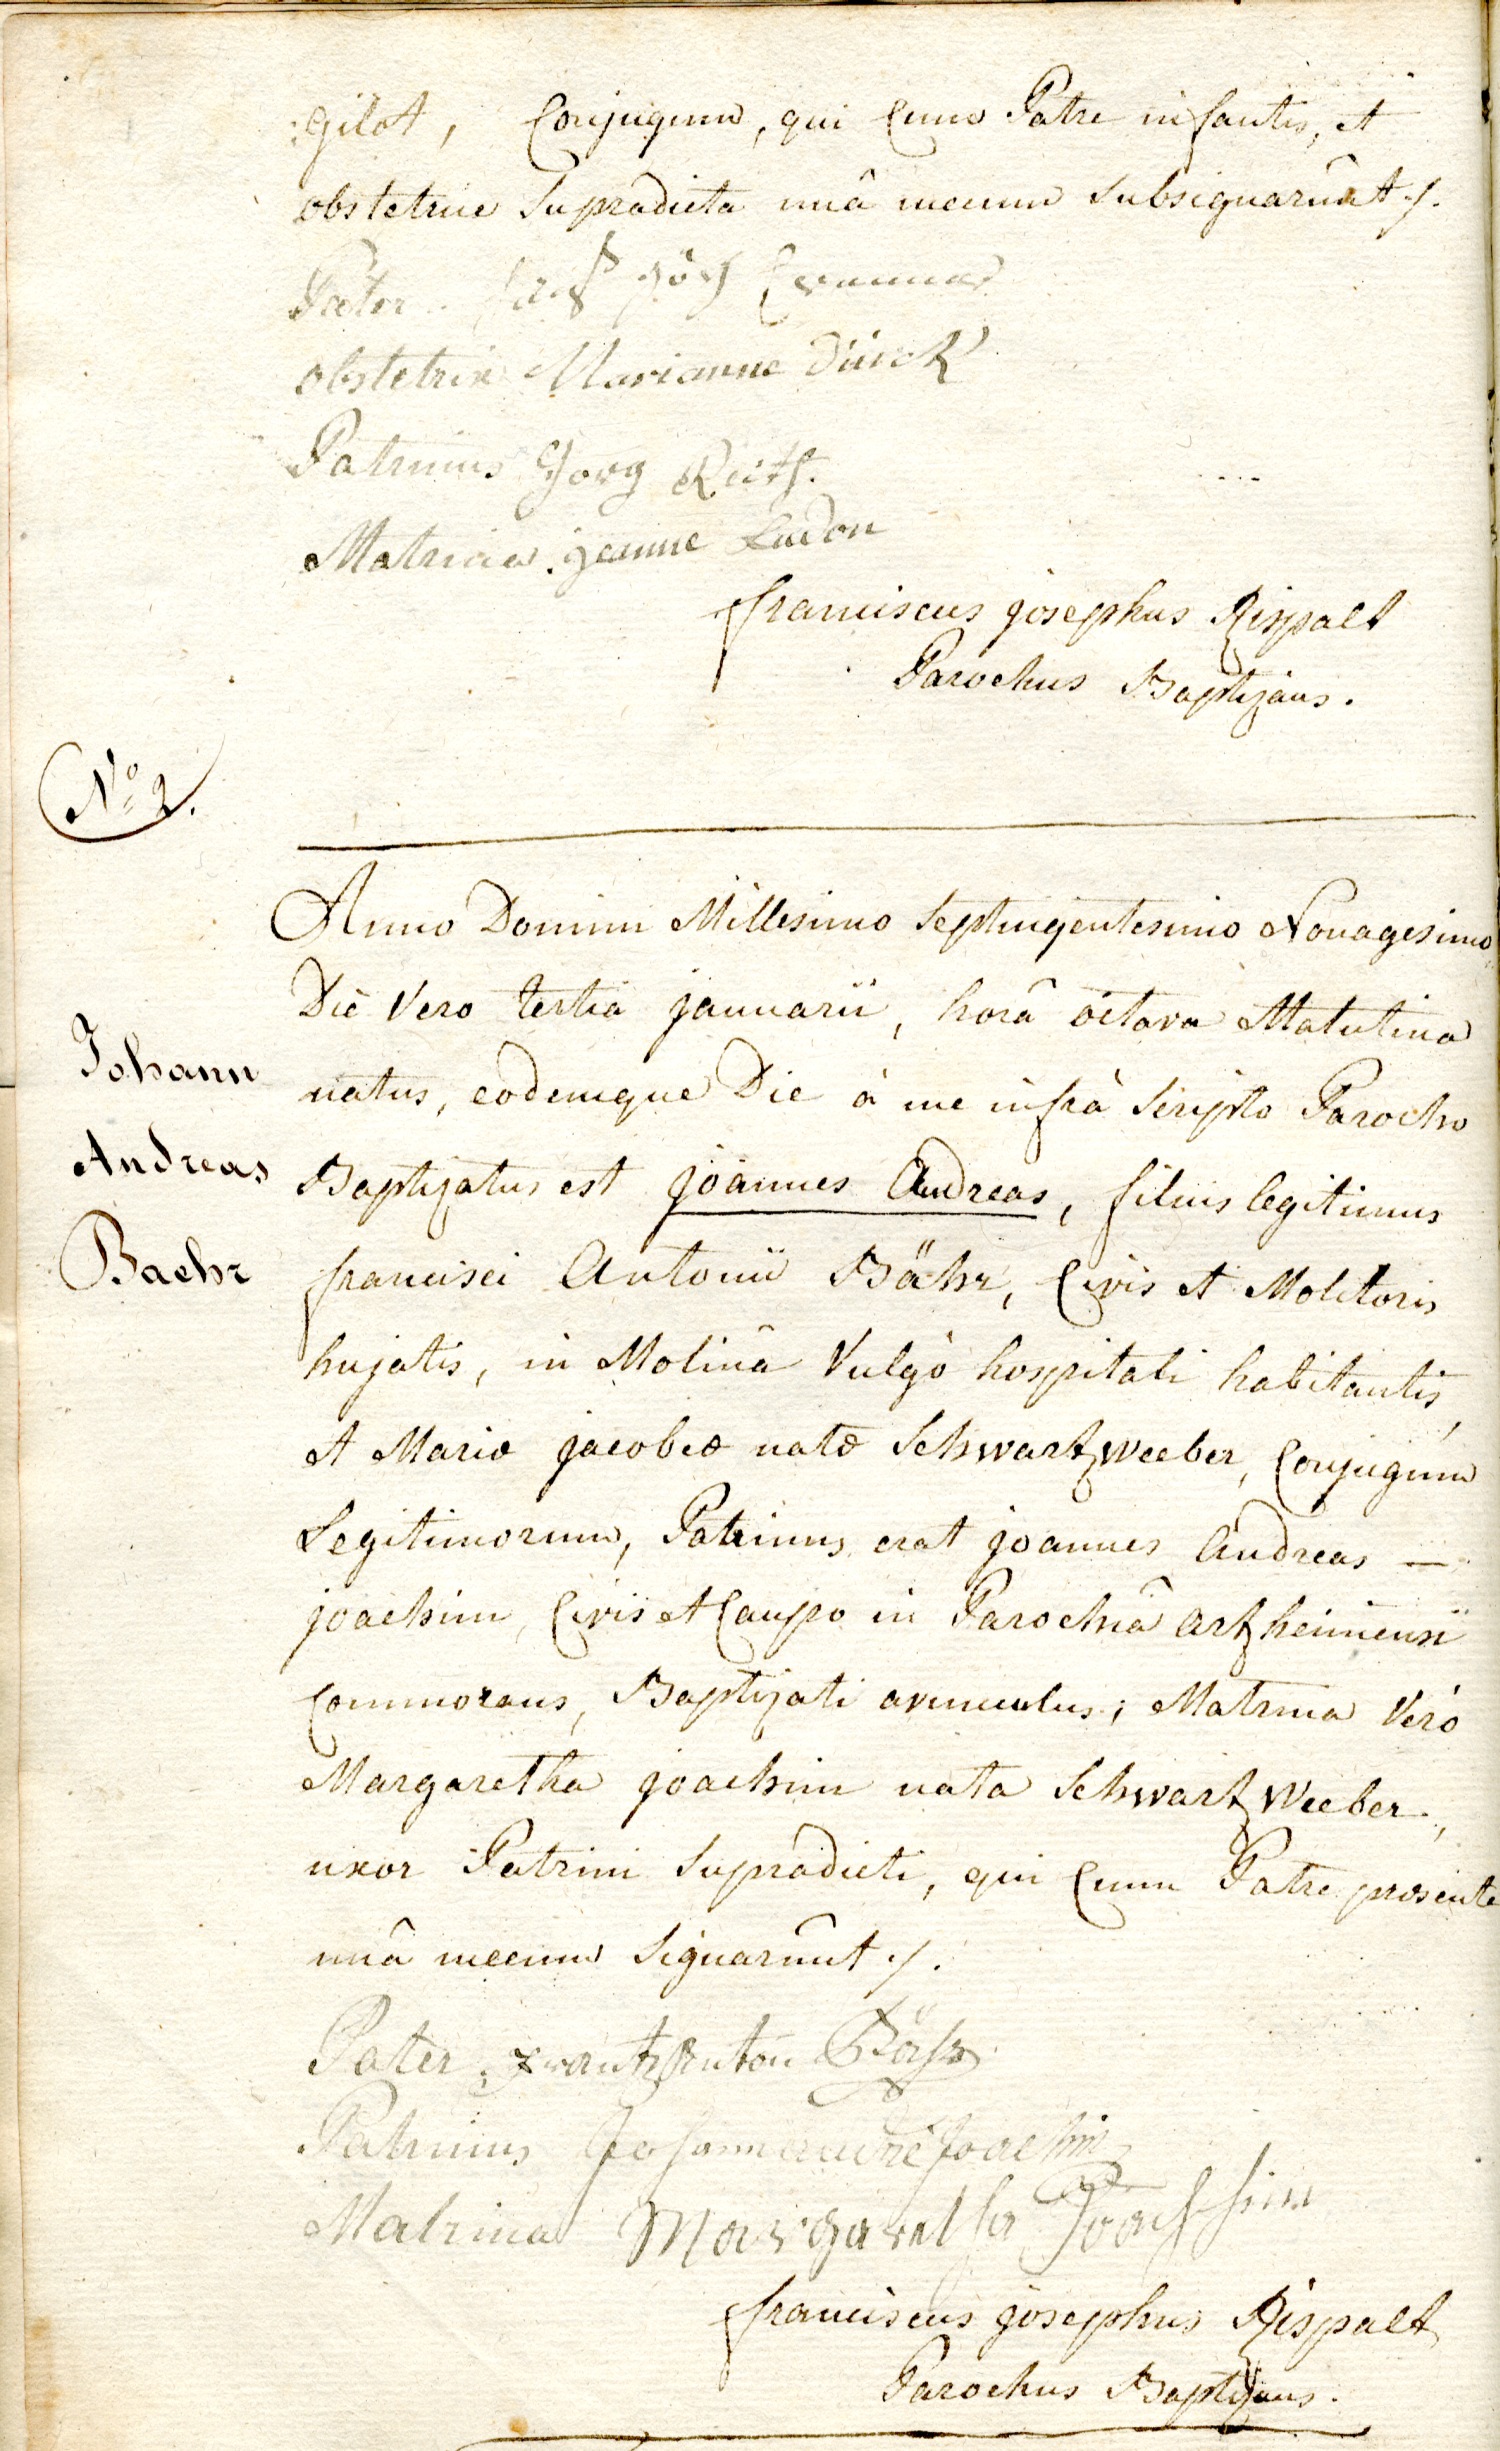 Gilot, Conjugum, qui Cum Patre infantis, et
obstetrice Supradicta unâ mecum subsignarûnt ./.
Pater
obstetrix Marianne Dürck
Patrinus Jorg
Matrina jeanne
franciscus josephus Rispalt
Parochus Baptizans.
No 2.
Anno Domini Millesimo Septingentesimo Nonagesimo
Die Vero tertia januarii, horâ octava Matutina
natus, eodemque Die à me infrà scripto Parocho
Baptizatus est joannes Andreas, filius legitimus
francisci Antonii Bähr, Civis et Molitoris
hujatis, in Molinâ Vulgò hospitali habitantis,
et Mariæ jacobeæ natæ Schwartzweeber, Conjugum
Legitimorum, Patrinus erat joannes Andreas —
joachim, Civis et Caupo in Parochiâ artzheimensi
Commorans, Baptizati avunculus; Matrina Verò
Margaretha joachim nata Schwartzweeber,
uxor Patrini Supradicti, qui Cum Patre præsente
unâ mecum signarûnt ./.
Johann
Andreas
Baehr
Pater, Frantz Anton Bähr
Patrinus Johann andre Joachim
Matrina Margaretha Joachim
franciscus josephus Rispalt
Parochus Baptizans.